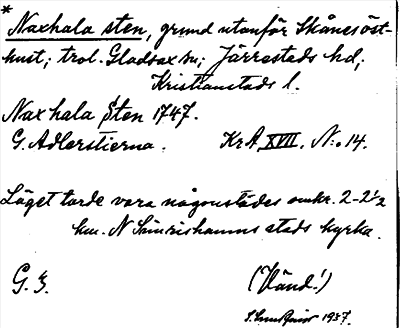 *
Naxhala sten, grund utanför Skånes öst-
kust; trol. Gladsax sn; Järrestads hd;
Kristianstads l.
Naxhala Sten 1747.
G. Adlerstierna. KrA XVII. N:o 14.
Läget torde vara någonstädes omkr. 2-2½
km. N Simrishamns stads kyrka.
G. Z.
(Vänd!)
1937.